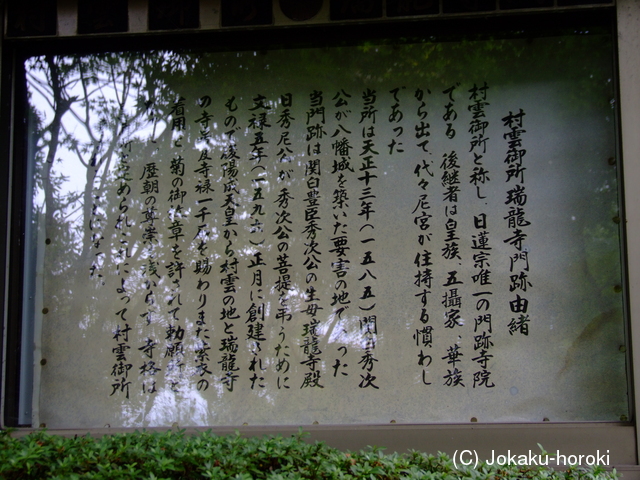 村雲御所瑞龍寺門跡由緒
村雲御所と称し、日蓮宗唯一の門跡寺院
である 後継者は皇族、五攝家、華族
から出て、代々尼宮が住持する慣わし
であった
当所は天正十三年(一五八五)関白秀次
公が八幡城を築いた要害の地であった
当門跡は関白豊臣秀次公の生母瑞龍寺殿
日秀尼公が秀次公の菩提を弔うために
文禄五年(一五九六)正月に創建された
もので後陽成天皇から村雲の地と瑞龍寺
の寺号及寺禄一千石を賜わりまた紫衣の
着用と菊の御紋章を許されて勅願所と
歴朝の尊崇も浅からず 寺格は
所と定められこれによって村雲御所
なった
(C) Jokaku-horoki